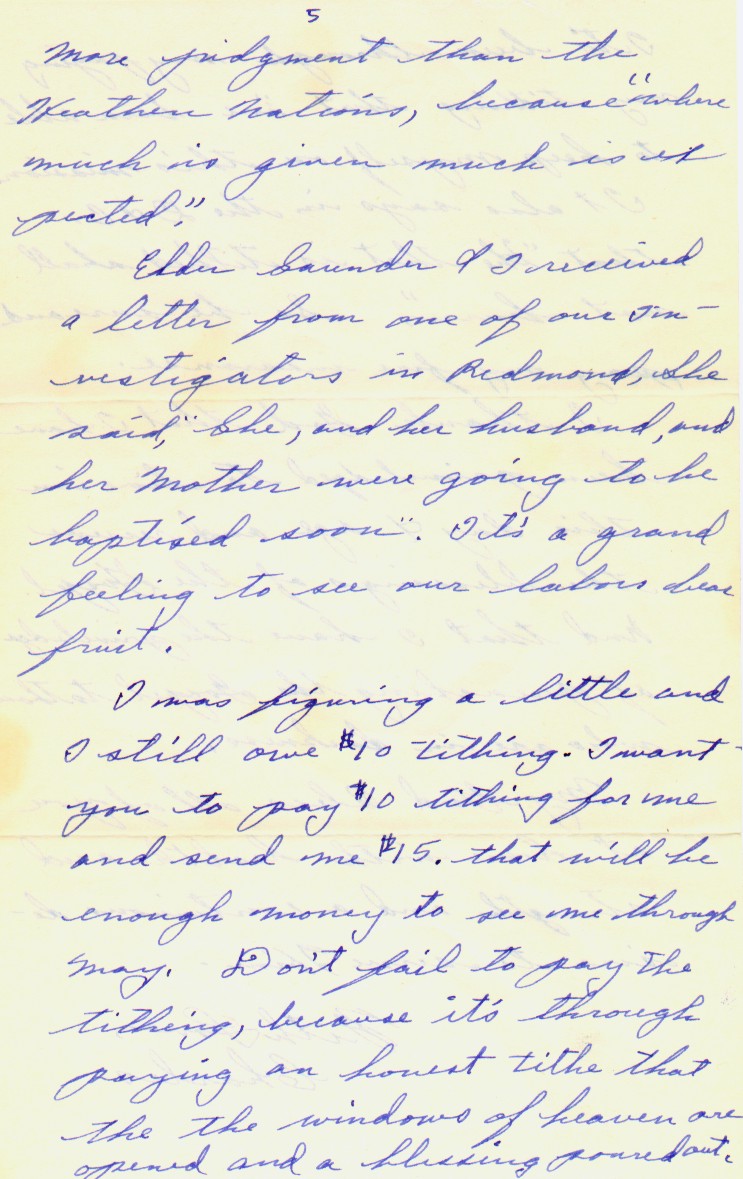 5
more judgment than the
Heathen Nations, because "where
much is given much is ex
pected".
Elder Saunder & I received
a letter from one of our In-
vestigators in Redmond, she
said, "She, and her husband, and
her Mother were going to be
baptised soon". It's a grand
feeling to see our labors bear
fruit.
I was figuring a little and
I still owe $10 tithing. I want
you to pay $10 tithing for me
and send me $15. that will be
enough money to see me through
May. Don't fail to pay the
tithing, because it's through
paying an honest tithe that
the the windows of heaven are
opened and a blessing poured out.